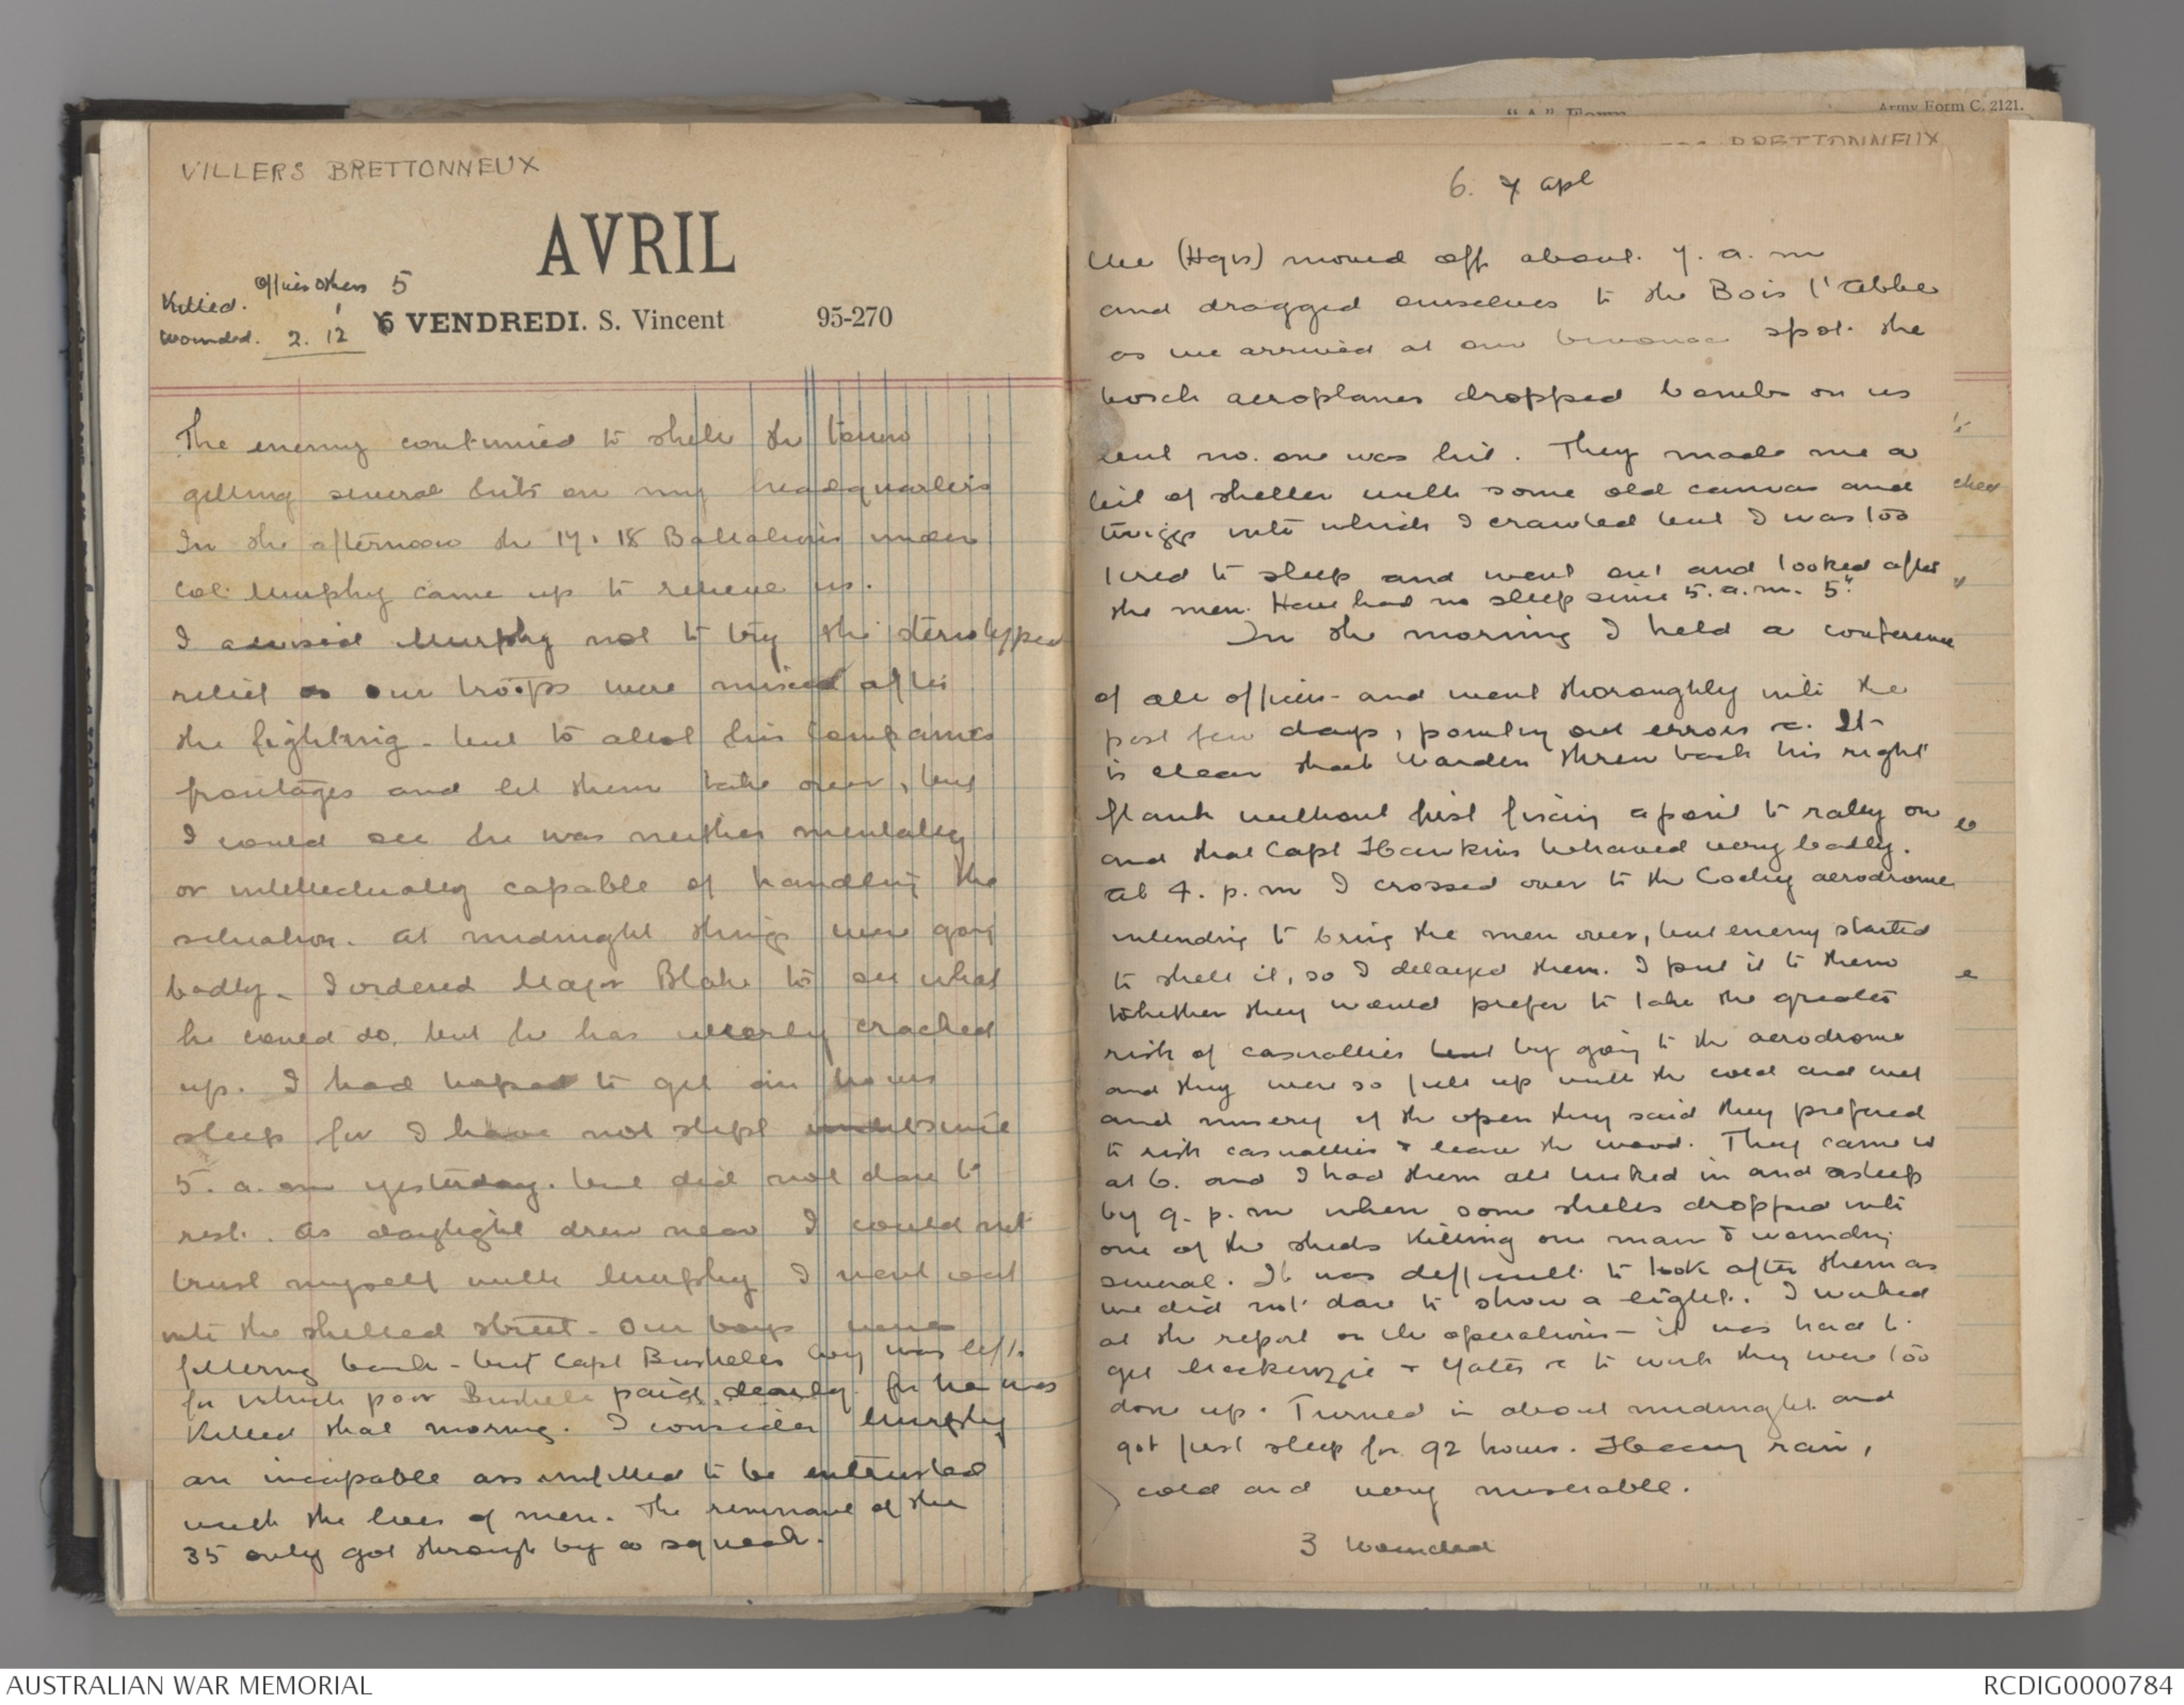 VILLERS BRETTONNEUX
AVRIL
Officers Others 5
Killed. 1
Wounded. 2. 12
6 VENDREDI. S. Vincent 95-270
The enemy continued to shell the town
getting several hits on my headquarters
In the afternoon the 17 & 18 Battalions under
Col. Murphy came up to relieve us.
I advised Murphy not to try the sterotyped
relief as our troops were mixed after
the fighting - but to allot his Companies
frontages and let them take over, but
I could see he was neither mentally
or intellectually capable of handling the
situation. At midnight things were going
badly. I ordered Major Blake to see what
he could do, but he has utterly cracked
up. I had hoped to get an hours
sleep for I have not slept since
5. a. m yesterday. but did not dare to
rest. As daylight drew near I could not
trust myself with Murphy I went out
into the shelled street - Our boys were
filtering back - but Capt Bushelles Coy was left.
for which poor Bushelle paid dearly for he was
killed that morning. I consider Murphy
an incapable ass unfitted to be entrusted
with the lives of men. The remnant of the
35 only got through by a squeak.
"A" Form
Army Form C. 2121.
BRETTONNEUX
6. 7 Apl
We (Hqrs) moved off about. 7. a. m
and dragged ourselves to the Bois l'Abbe
as we arrived at our bivouac spot the
bosch aeroplanes dropped bombs on us
but no. one was hit. They made me a
bit of shelter with some old canvas and
twiggs into which I crawled but I was too
tired to sleep and went out and looked after
the men. Have had no sleep since 5. a. m. 5th.
In the morning I held a conference
of all officers - and went thoroughly into the
past few days, pointing out errors &c. It
is clear that Warden threw back his right
flank without first fixing a point to rally on
and that Capt Hawkins behaved very badly.
At 4. p. m I crossed over to the Cachy aerodrome
intending to bring the men over, but enemy started
to shell it, so I delayed them. I put it to them
whether they would prefer to take the greater
risk of casualties but by going to the aerodrome
and they were so full up with the cold and wet
and misery of the open they said they prefered
to risk casualties & leave the wood. They came in
at 6. and I had them all tucked in and asleep
by 9. p. m when some shells dropped into
one of the sheds killing one man & wounding
several. It was difficult to look after them as
we did not dare to show a light. I worked
at the report on the operations - it was hard to
get Mackenzie & Yates &c to work they were too
done up. Turned in about midnight and
got first sleep for 92 hours. Heavy rain,
cold and very miserable.
3 Wounded
AUSTRALIAN WAR MEMORIAL
RCDIG0000784